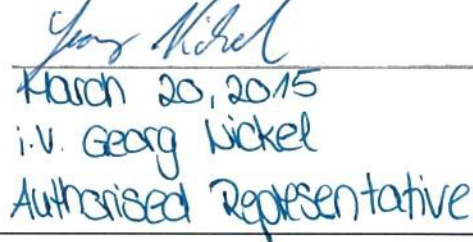 Georg Nickel
March 20, 2015
i.V. Georg Nickel
Authorised Representative